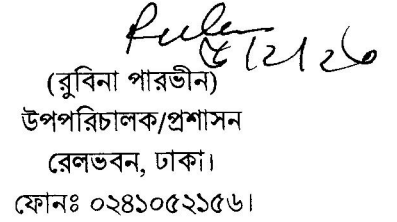 ৫/২/২৬
(রুবিনা পারভীন)
উপপরিচালক/প্রশাসন
রেলভবন, ঢাকা।
ফোনঃ ০২৪১০৫২১৫৬।